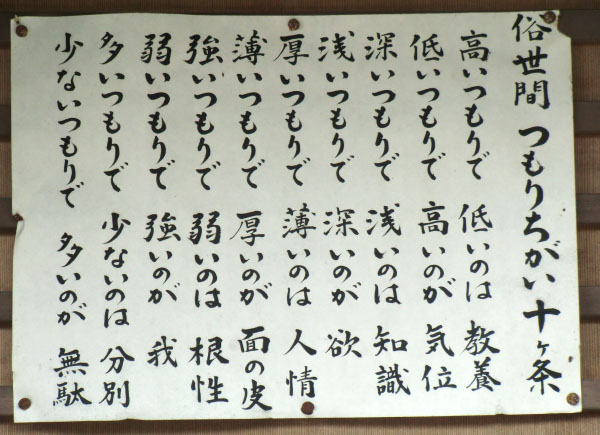 俗世間 つもりちがい十ヶ条
高いつもりで 低いのは 教養
低いつもりで 高いのが 気位
深いつもりで 浅いのは 知識
浅いつもりで 深いのが 欲
厚いつもりで 薄いのは 人情
薄いつもりで 厚いのが 面の皮
強いつもりで 弱いのは 根性
弱いつもりで 強いのが 我
多いつもりで 少ないのは 分別
少ないつもりで 多いのが 無駄